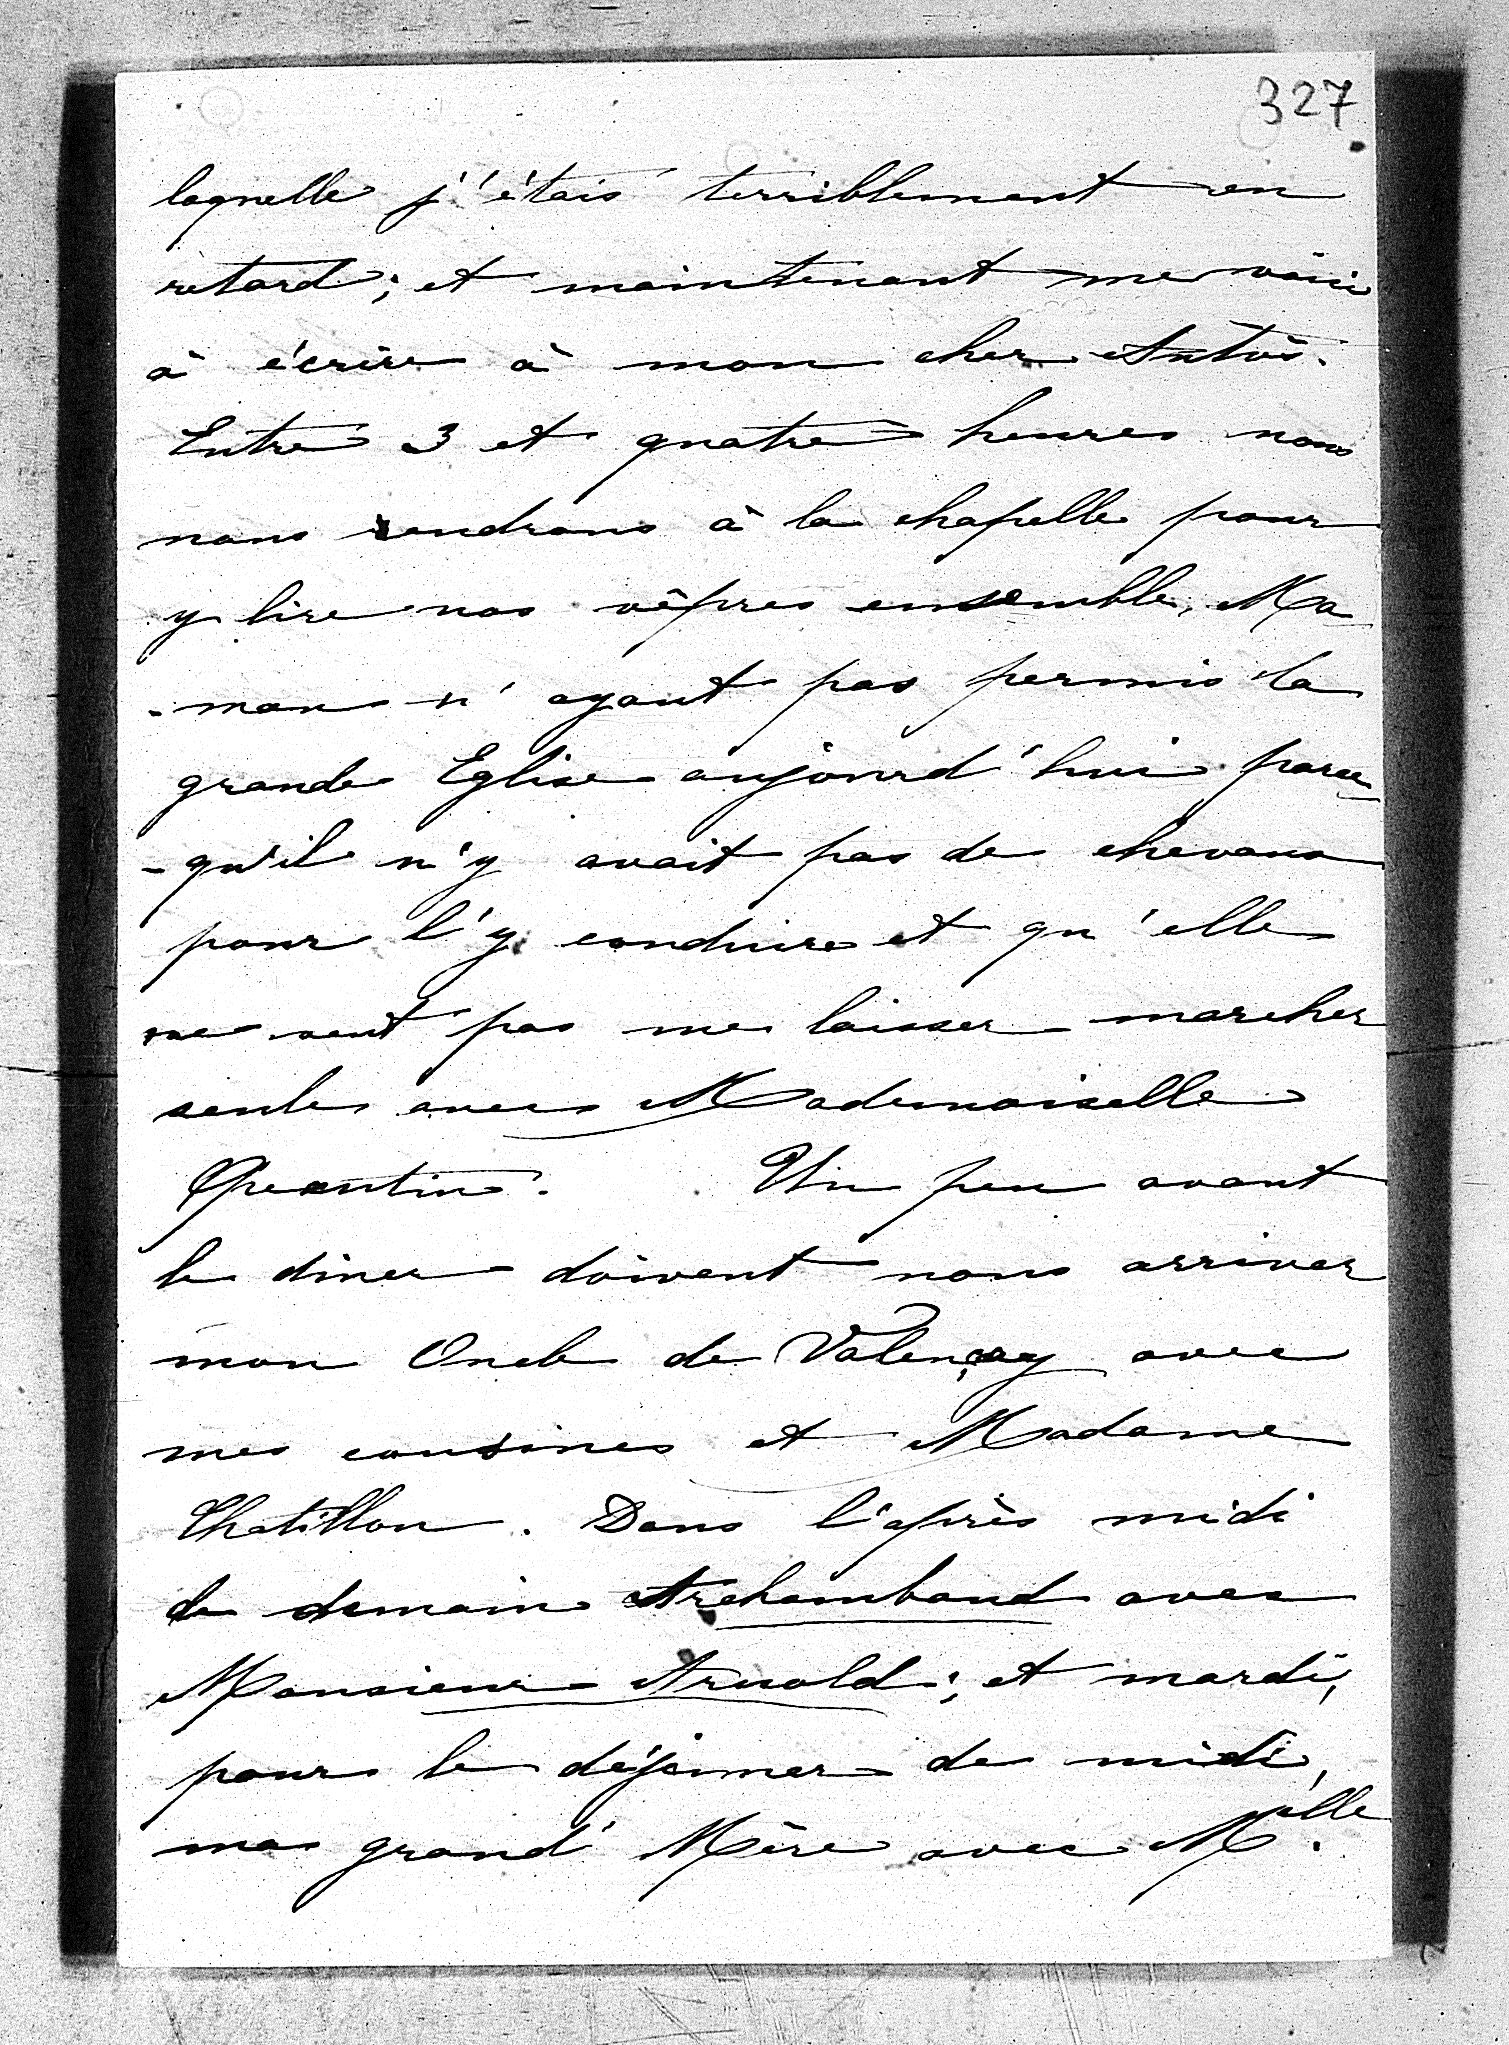 327
laquelle j'étais terriblement en
retard; et maintenant me voici
à écrire à mon cher Antoś.
Entre 3 et quatre heures nous
nous rendrons à la chapelle pour
y lire nos vêpres ensemble, Ma
-man n'ayant pas permis la
grande Eglise aujourd'hui parce
-qu'il n'y avait pas de chevaux
pour l'y conduire et qu'elle
ne veut pas me laisser marcher
seule avec Mademoiselle
Quentin. Un peu avant
le diner doivent nous arriver
mon Oncle de Valençay avec
mes cousines et Madame
Chatillon. Dans l'après midi
de demain Archambaud avec
Monsieur Arnold; et mardi,
pour le déjeuner de midi,
ma grand' Mère avec Melle.